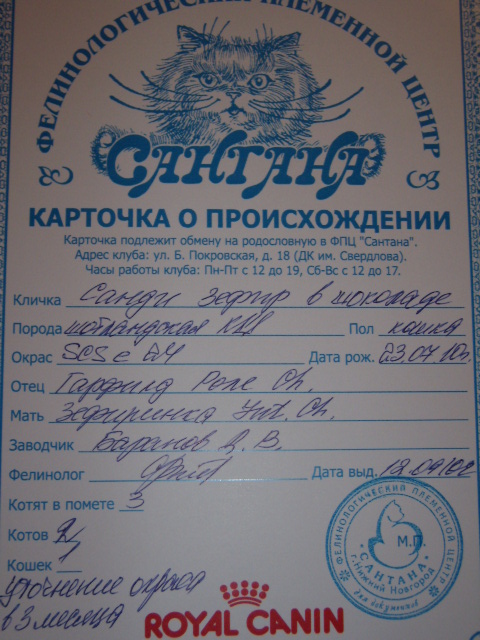 ФЕЛИНОЛОГИЧЕСКИЙ ПЛЕМЕННОЙ ЦЕНТР
САНТАНА
КАРТОЧКА О ПРОИСХОЖДЕНИИ
Карточка подлежит обмену на родословную в ФПЦ "Сантана".
Адрес клуба: ул. Б. Покровская, д. 18 (ДК им. Свердлова).
Часы работы клуба: Пн-Пт с 12 до 19, Сб-Вс с 12 до 17.
Кличка Санди Зефир в шоколаде
Порода шотландская Пол кошка
Окрас SCS e 24 Дата рож. 23.07.10г.
Отец Гарфилд Ch.
Мать Зефиринка Int. Ch.
Заводчик Баранов Д. В.
Фелинолог Дата выд. 12.09.10г
Котят в помете 3
Котов 2
Кошек 1
уточнение окраса
в 3 месяца
ФЕЛИНОЛОГИЧЕСКИЙ ПЛЕМЕННОЙ ЦЕНТР
М.П.
САНТАНА
г.Нижний Новгород
для документов
ROYAL CANIN